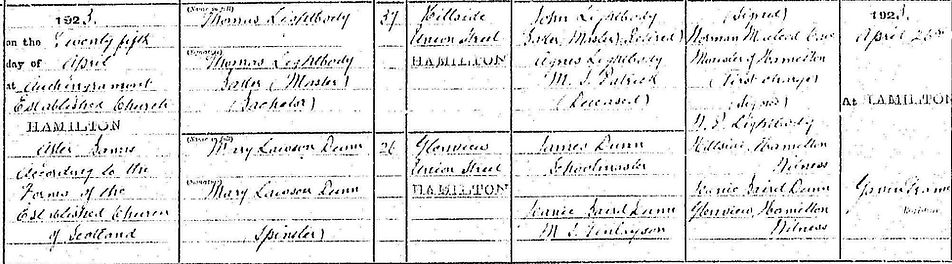 1923.
on the Twenty fifth
day of April
at Auchingramont
Established Church
HAMILTON
After Banns
According to the
Forms of the
Established Church
of Scotland
(Name in full)
Thomas Lightbody
(Signature)
Thomas Lightbody
Baker (Master)
(Bachelor)
(Name in full)
Mary Lawson Dunn
(Signature)
Mary Lawson Dunn
(Spinster)
37
26
Hillside
Union Street
HAMILTON
Glenview
Union Street
HAMILTON
John Lightbody
Baker (Master) (Retired)
Agnes Lightbody
M.S. Patrick
(Deceased)
James Dunn
Schoolmaster
Jeanie Baird Dunn
M.S. Finlayson
(Signed)
Norman McLeod
Minister of Hamilton
(First Charge)
(Signed)
Lightbody
Hillside, Hamilton
Witness
Jeanie Baird Dunn
Glenview, Hamilton
Witness
1923.
April
At HAMILTON
Registrar